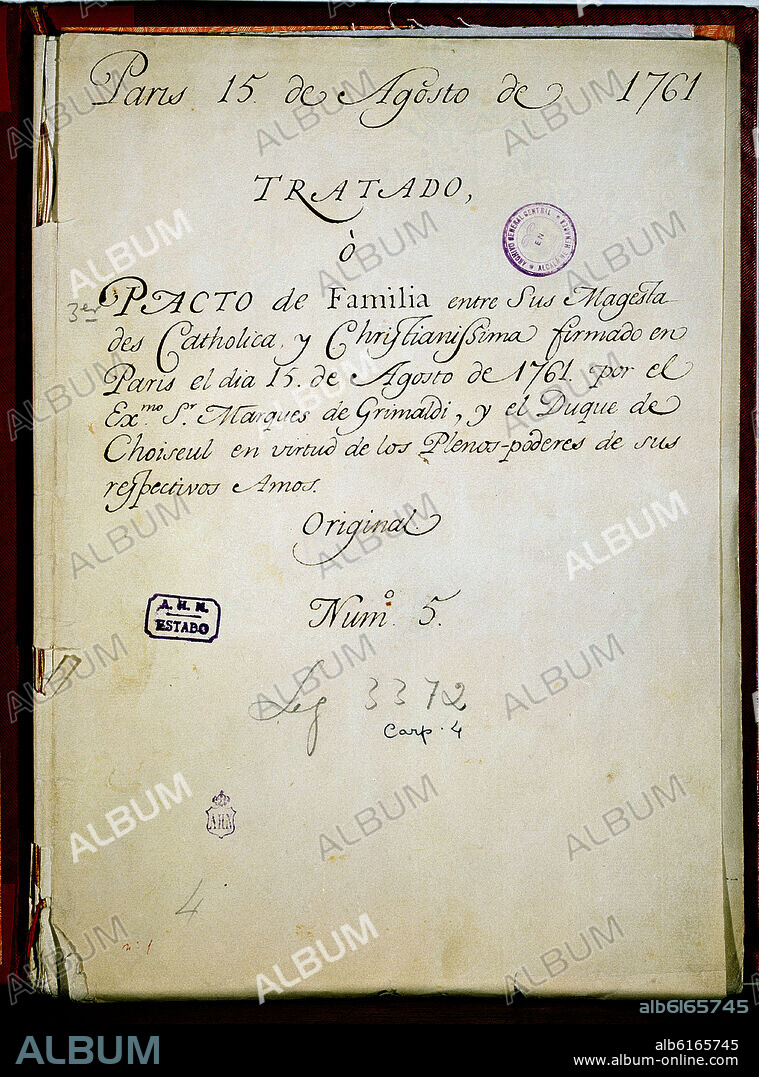 Paris 15. de Agosto de 1761
TRATADO,
ò
3er PACTO de Familia entre Sus Magesta-
des Catholica, y Christianissima firmado en
Paris el dia 15. de Agosto de 1761. por el
Ex.mo S.r Marques de Grimaldi, y el Duque de
Choiseul en virtud de los Plenos-poderes de sus
respectivos Amos.
Original.
Num.o 5.
ARCHIVO GENERAL CENTRAL
EN
ALCALÁ DE HENARES
A. H. N.
ESTADO
Leg 3372
Carp. 4
AHN
4
nº 1
ALBUM
alb6165745
ALBUM
alb6165745
www.album-online.com